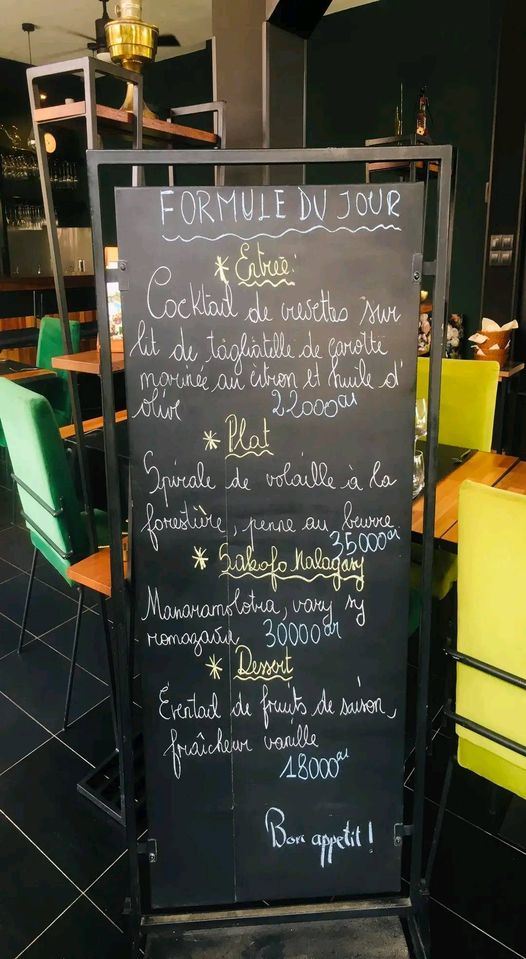 FORMULE DU JOUR
* Entrée:
Cocktail de crevettes sur
lit de tagliatelle de carotte
marinée au citron et huile d'
olive 22000ar
* Plat
Spirale de volaille à la
forestière, penne au beurre
35000ar
* Sakafo Malagasy
Manaramolotra, vary sy
romazava 30000ar
* Dessert
Éventail de fruits de saison,
fraîcheur vanille
18000ar
Bon appetit !